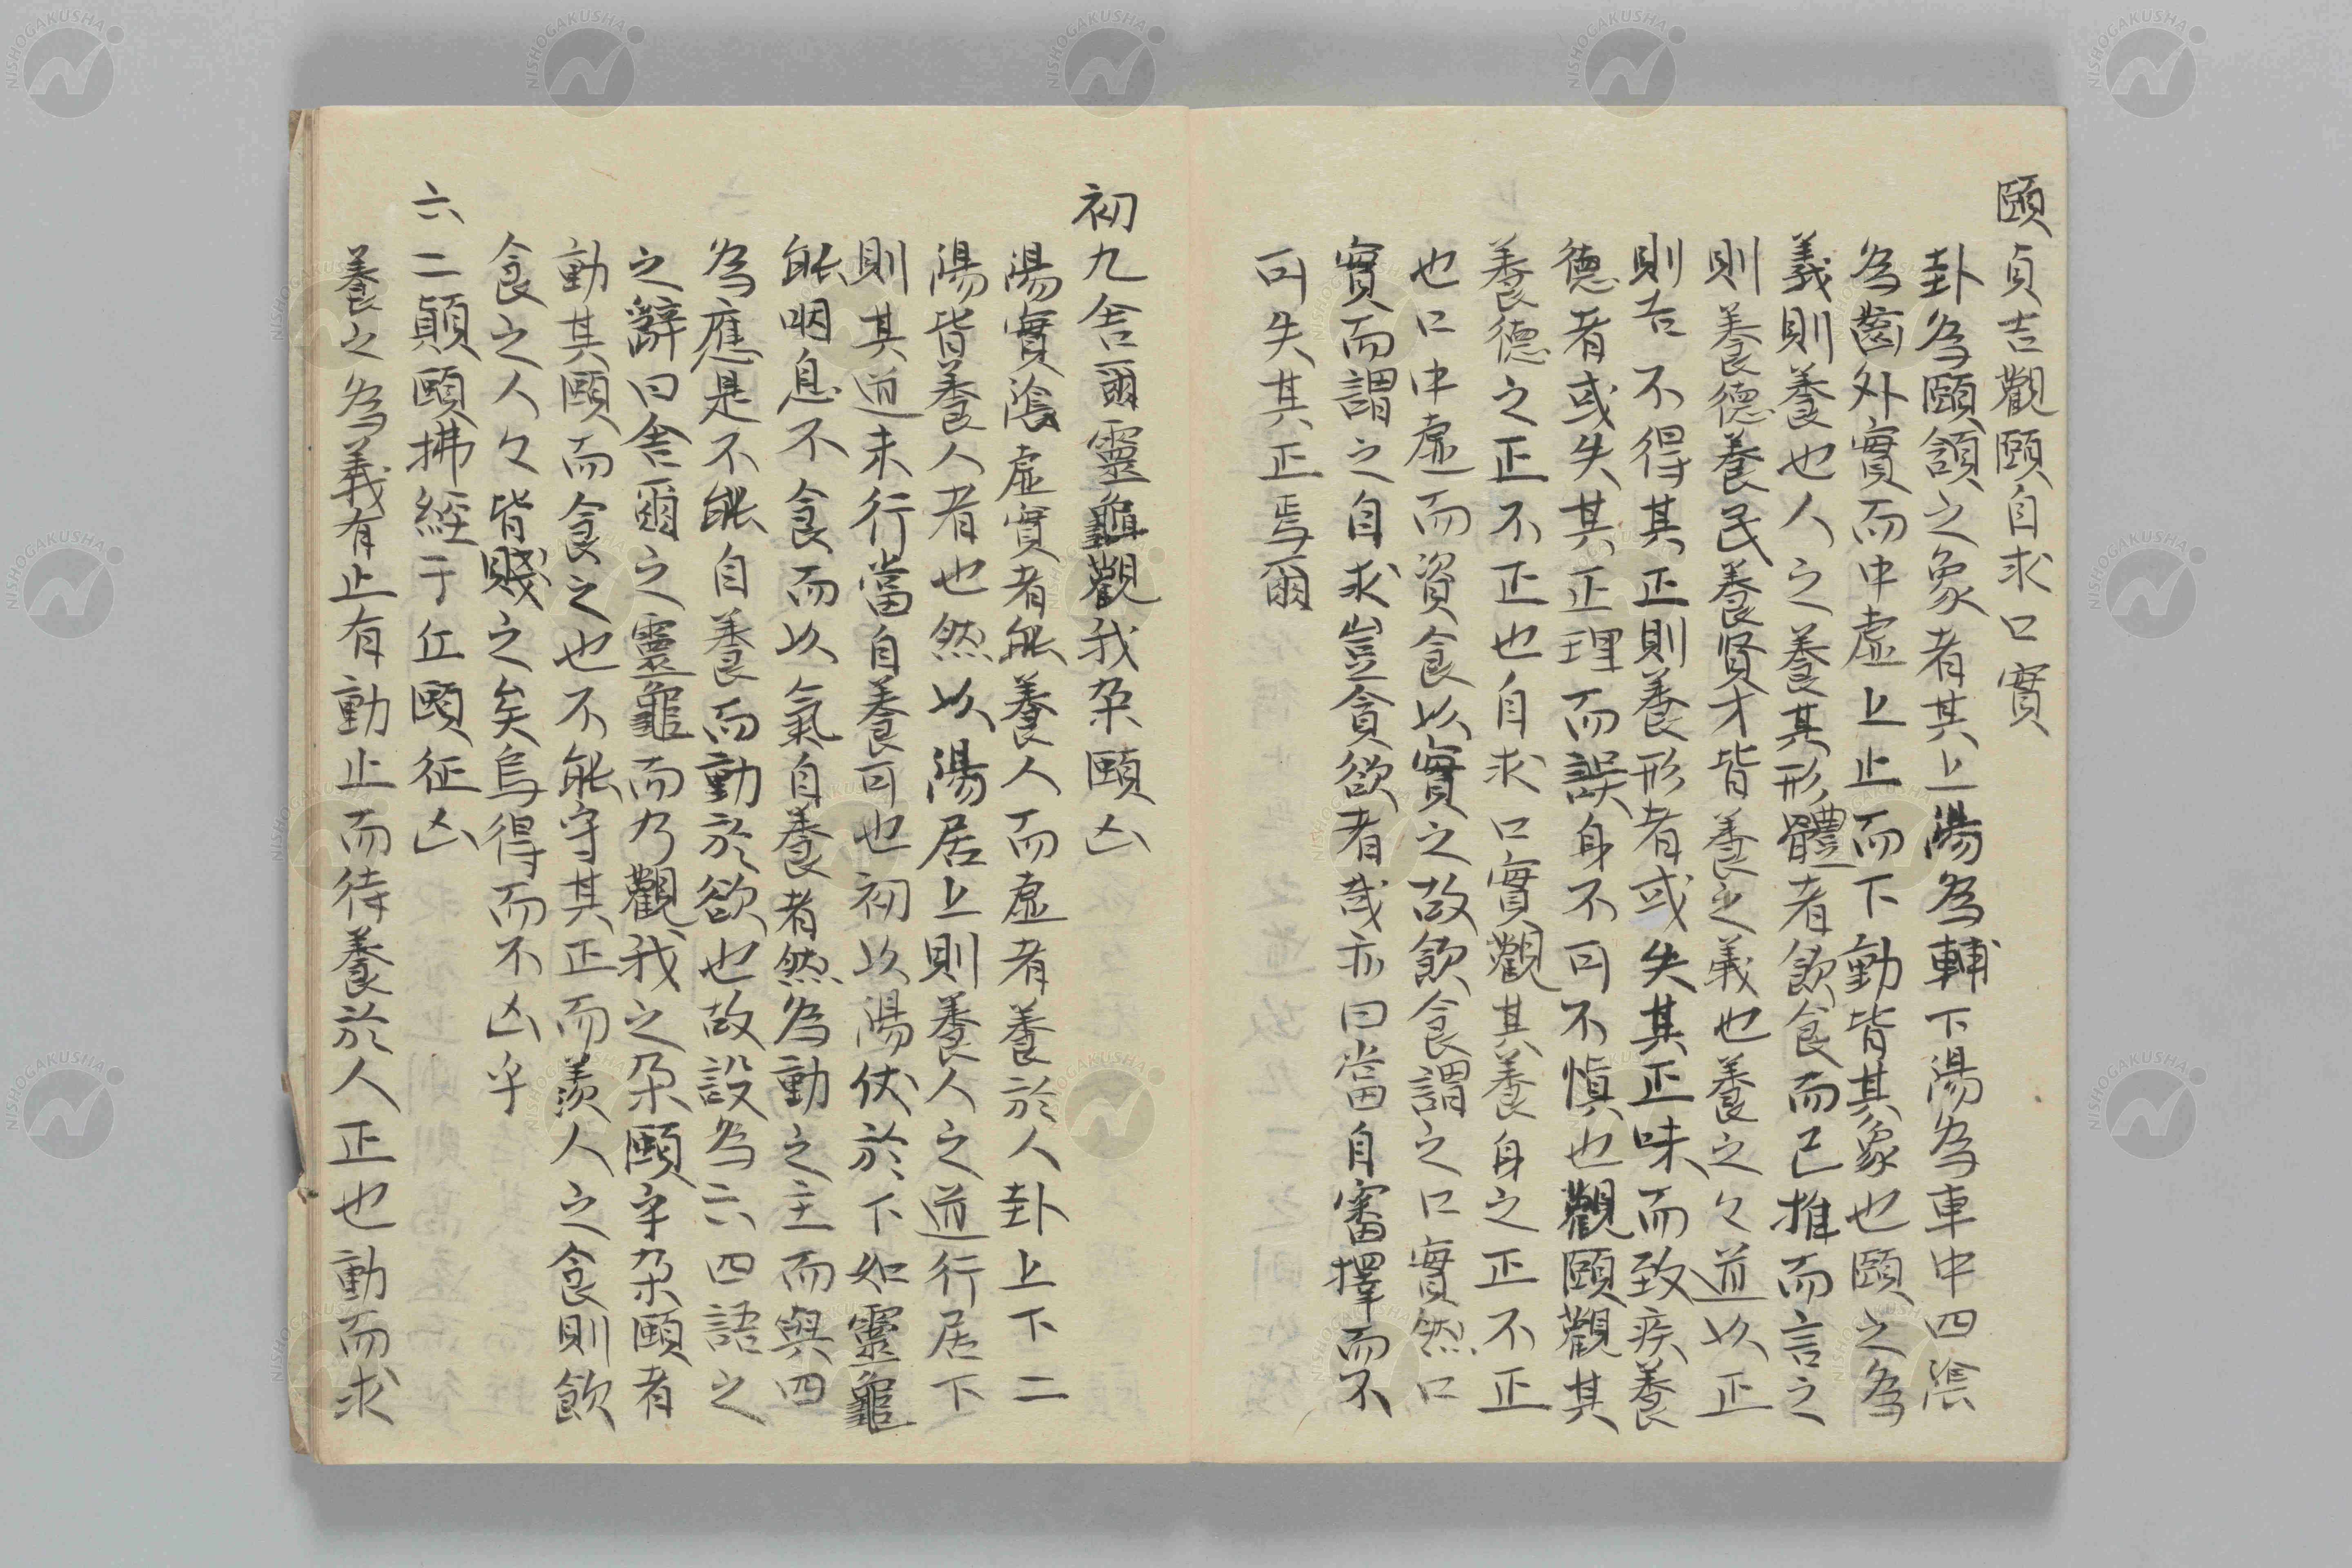 頤貞吉觀頤自求口實
卦為頤頷之象者其上陽為輔下陽為車中四陰
為齒外實而中虛上止而下動皆其象也頤之為
義則養也人之養其形體者飲食而已推而言之
則養德養民養賢才皆養之義也養之々道以正
則吉不得其正則養形者或失其正味而致疾養
德者或失其正理而誤身不可不慎也觀頤觀其
養德之正不正也自求口實觀其養身之正不正
也口中虛而資食以實之故飲食謂之口實然口
實而謂之自求豈貪欲者哉亦曰當自審擇而不
可失其正焉爾
初九舍爾靈龜觀我朶頤凶
陽實陰虛實者能養人而虛者養於人卦上下二
陽皆養人者也然以陽居上則養人之道行居下
則其道未行當自養可也初以陽伏於下如靈龜
能咽息不食而以氣自養者然為動之主而與四
為應是不能自養而動於欲也故設為六四語之
之辭曰舍爾之靈龜而乃觀我之朶頤乎朶頤者
動其頤而食之也不能守其正而羨人之食則飲
食之人々皆賤之矣烏得而不凶乎
六二顚頤拂經于丘頤征凶
養之為義有止有動止而待養於人正也動而求
NISHOGAKUSHA